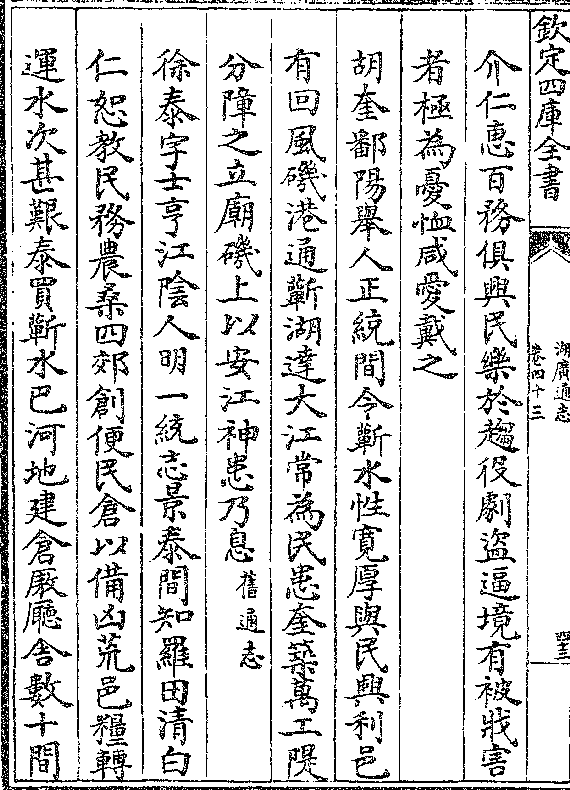 欽定四庫全書
湖廣通志
卷四十三
四三
介仁惠百務俱興民樂於趨役劇盜逼境有被戕害
者極為憂恤咸愛戴之
胡奎鄱陽舉人正統間令蘄水性寛厚與民興利邑
有回風磯港通蘄湖達大江常為民患奎築萬工隄
分障之立廟磯上以安江神患乃息舊通志
徐泰字士亨江陰人明一統志景泰間知羅田清白
仁恕教民務農桑四郊創便民倉以備凶荒邑糧轉
運水次甚艱泰買蘄水巴河地建倉厫廳舍數十間